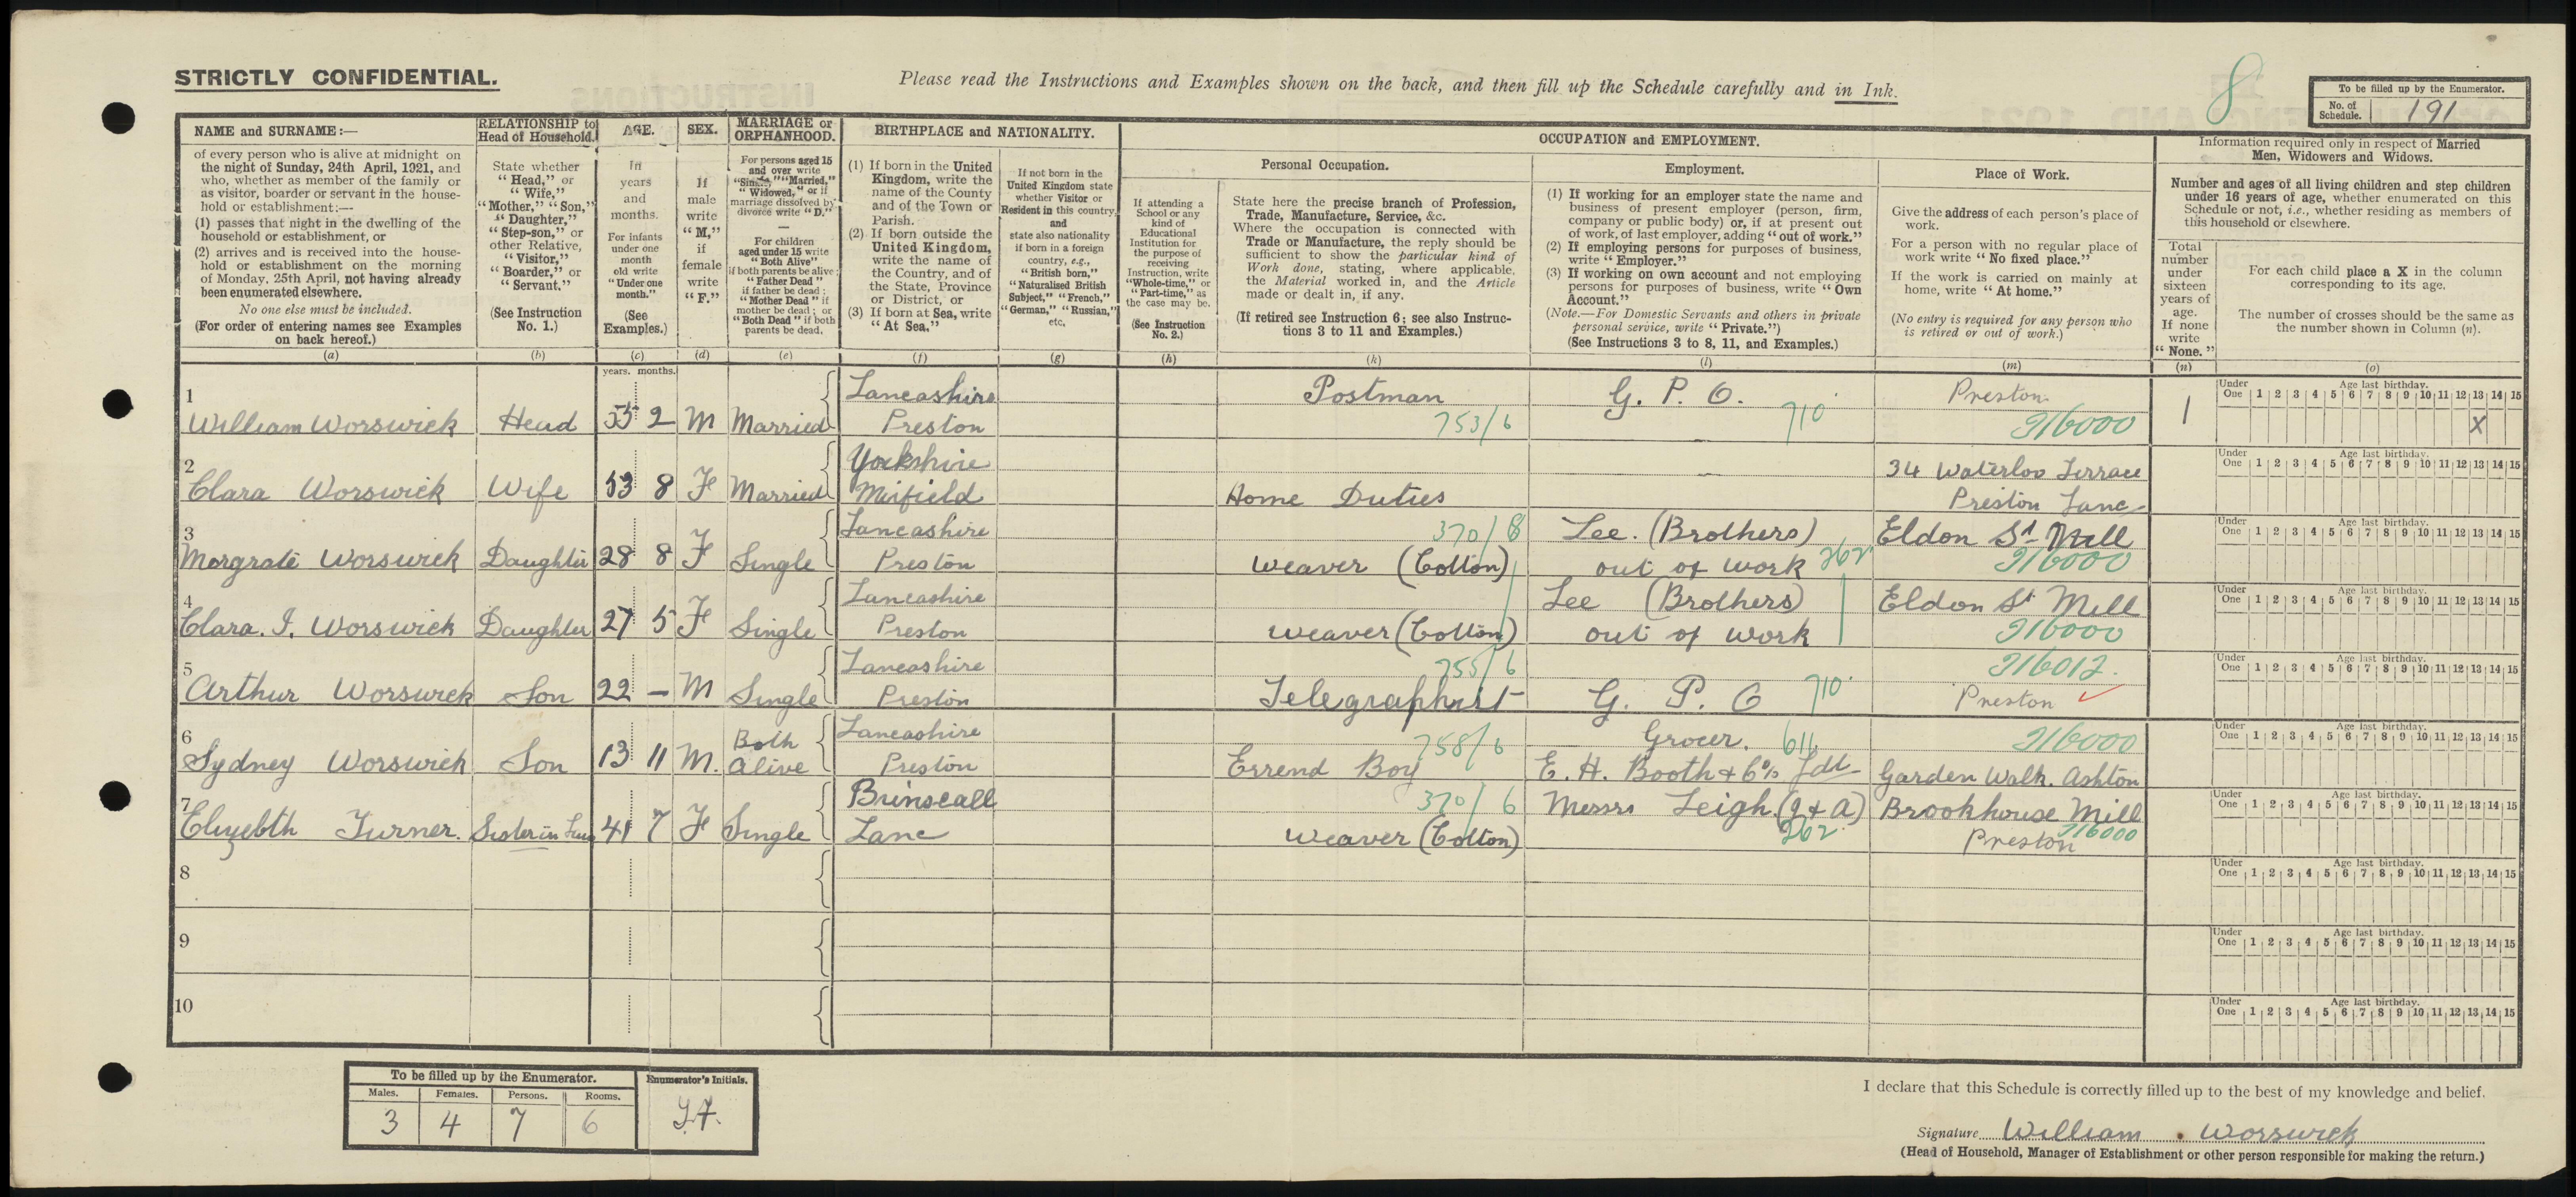 STRICTLY CONFIDENTIAL.
Please read the Instructions and Examples shown on the back, and then fill up the Schedule carefully and in Ink.
8
To be filled up by the Enumerator.
No. of Schedule. 191
NAME and SURNAME:—
of every person who is alive at midnight on
the night of Sunday, 24th April, 1921, and
who, whether as member of the family or
as visitor, boarder or servant in the house-
hold or establishment:—
(1) passes that night in the dwelling of the
household or establishment, or
(2) arrives and is received into the house-
hold or establishment on the morning
of Monday, 25th April, not having already
been enumerated elsewhere.
No one else must be included.
(For order of entering names see Examples
on back hereof.)
(a)
RELATIONSHIP to
Head of Household.
State whether
"Head," or
"Wife,"
"Mother," "Son,"
"Daughter,"
"Step-son," or
other Relative,
"Visitor,"
"Boarder," or
"Servant."
(See Instruction
No. 1.)
(b)
AGE.
In
years
and
months.
For infants
under one
month
old write
"Under one
month."
(See
Examples.)
(c)
SEX.
If
male
write
"M,"
if
female
write
"F."
(d)
MARRIAGE or
ORPHANHOOD.
For persons aged 15
and over write
"Single," "Married,"
"Widowed," or if
marriage dissolved by
divorce write "D."
—
For children
aged under 15 write
"Both Alive"
if both parents be alive;
"Father Dead"
if father be dead;
"Mother Dead" if
mother be dead; or
"Both Dead" if both
parents be dead.
(e)
BIRTHPLACE and NATIONALITY.
(1) If born in the United
Kingdom, write the
name of the County
and of the Town or
Parish.
(2) If born outside the
United Kingdom,
write the name of
the Country, and of
the State, Province
or District, or
(3) If born at Sea, write
"At Sea."
(f)
If not born in the
United Kingdom state
whether Visitor or
Resident in this country,
and
state also nationality
if born in a foreign
country, e.g.,
"British born,"
"Naturalised British
Subject," "French,"
"German," "Russian,"
etc.
(g)
OCCUPATION and EMPLOYMENT.
If attending a
School or any
kind of
Educational
Institution for
the purpose of
receiving
Instruction, write
"Whole-time," or
"Part-time," as
the case may be.
(See Instruction
No. 2.)
(h)
Personal Occupation.
State here the precise branch of Profession,
Trade, Manufacture, Service, &c.
Where the occupation is connected with
Trade or Manufacture, the reply should be
sufficient to show the particular kind of
Work done, stating, where applicable,
the Material worked in, and the Article
made or dealt in, if any.
(If retired see Instruction 6; see also Instruc-
tions 3 to 11 and Examples.)
(k)
Employment.
(1) If working for an employer state the name and
business of present employer (person, firm,
company or public body) or, if at present out
of work, of last employer, adding "out of work."
(2) If employing persons for purposes of business,
write "Employer."
(3) If working on own account and not employing
persons for purposes of business, write "Own
Account."
(Note.—For Domestic Servants and others in private
personal service, write "Private.")
(See Instructions 3 to 8, 11, and Examples.)
(l)
Place of Work.
Give the address of each person's place of
work.
For a person with no regular place of
work write "No fixed place."
If the work is carried on mainly at
home, write "At home."
(No entry is required for any person who
is retired or out of work.)
(m)
Information required only in respect of Married
Men, Widowers and Widows.
Number and ages of all living children and step children
under 16 years of age, whether enumerated on this
Schedule or not, i.e., whether residing as members of
this household or elsewhere.
Total
number
under
sixteen
years of
age.
If none
write
"None."
(n)
For each child place a X in the column
corresponding to its age.
The number of crosses should be the same as
the number shown in Column (n).
(o)
years. months.
Under One Age last birthday. 1 2 3 4 5 6 7 8 9 10 11 12 13 14 15
1 William Worswick Head 55 2 M Married Lancashire Preston Postman 753/6 G. P. O. 710 Preston 916000 1 X
Under One Age last birthday. 1 2 3 4 5 6 7 8 9 10 11 12 13 14 15
2 Clara Worswick Wife 53 8 F Married Yorkshire Mirfield Home Duties — 34 Waterloo Terrace Preston Lanc
Under One Age last birthday. 1 2 3 4 5 6 7 8 9 10 11 12 13 14 15
3 Morgrate Worswick Daughter 28 8 F Single Lancashire Preston 370/8 Weaver (Cotton) Lee. (Brothers) out of work 262 Eldon St Mill 916000
Under One Age last birthday. 1 2 3 4 5 6 7 8 9 10 11 12 13 14 15
4 Clara. I. Worswick Daughter 27 5 F Single Lancashire Preston Weaver (Cotton) Lee (Brothers) out of work Eldon St Mill 916000
Under One Age last birthday. 1 2 3 4 5 6 7 8 9 10 11 12 13 14 15
5 Arthur Worswick Son 22 — M Single Lancashire Preston 755/6 Telegraphist G. P. O 710 916012. Preston
Under One Age last birthday. 1 2 3 4 5 6 7 8 9 10 11 12 13 14 15
6 Sydney Worswick Son 13 11 M. Both Alive Lancashire Preston 758/6 Errend Boy Grocer. 611 E. H. Booth & Co Ltd 916000 Garden Walk. Ashton
Under One Age last birthday. 1 2 3 4 5 6 7 8 9 10 11 12 13 14 15
7 Elizebth Turner. Sister in Law 41 7 F Single Brinscall Lanc 370/6 Weaver (Cotton) Messrs Leigh (J & A) 262 Brookhouse Mill Preston 916000
Under One Age last birthday. 1 2 3 4 5 6 7 8 9 10 11 12 13 14 15
8
Under One Age last birthday. 1 2 3 4 5 6 7 8 9 10 11 12 13 14 15
9
Under One Age last birthday. 1 2 3 4 5 6 7 8 9 10 11 12 13 14 15
10
Under One Age last birthday. 1 2 3 4 5 6 7 8 9 10 11 12 13 14 15
To be filled up by the Enumerator.
Males. Females. Persons. Rooms.
3 4 7 6
Enumerator's Initials.
I declare that this Schedule is correctly filled up to the best of my knowledge and belief.
Signature William Worswick
(Head of Household, Manager of Establishment or other person responsible for making the return.)